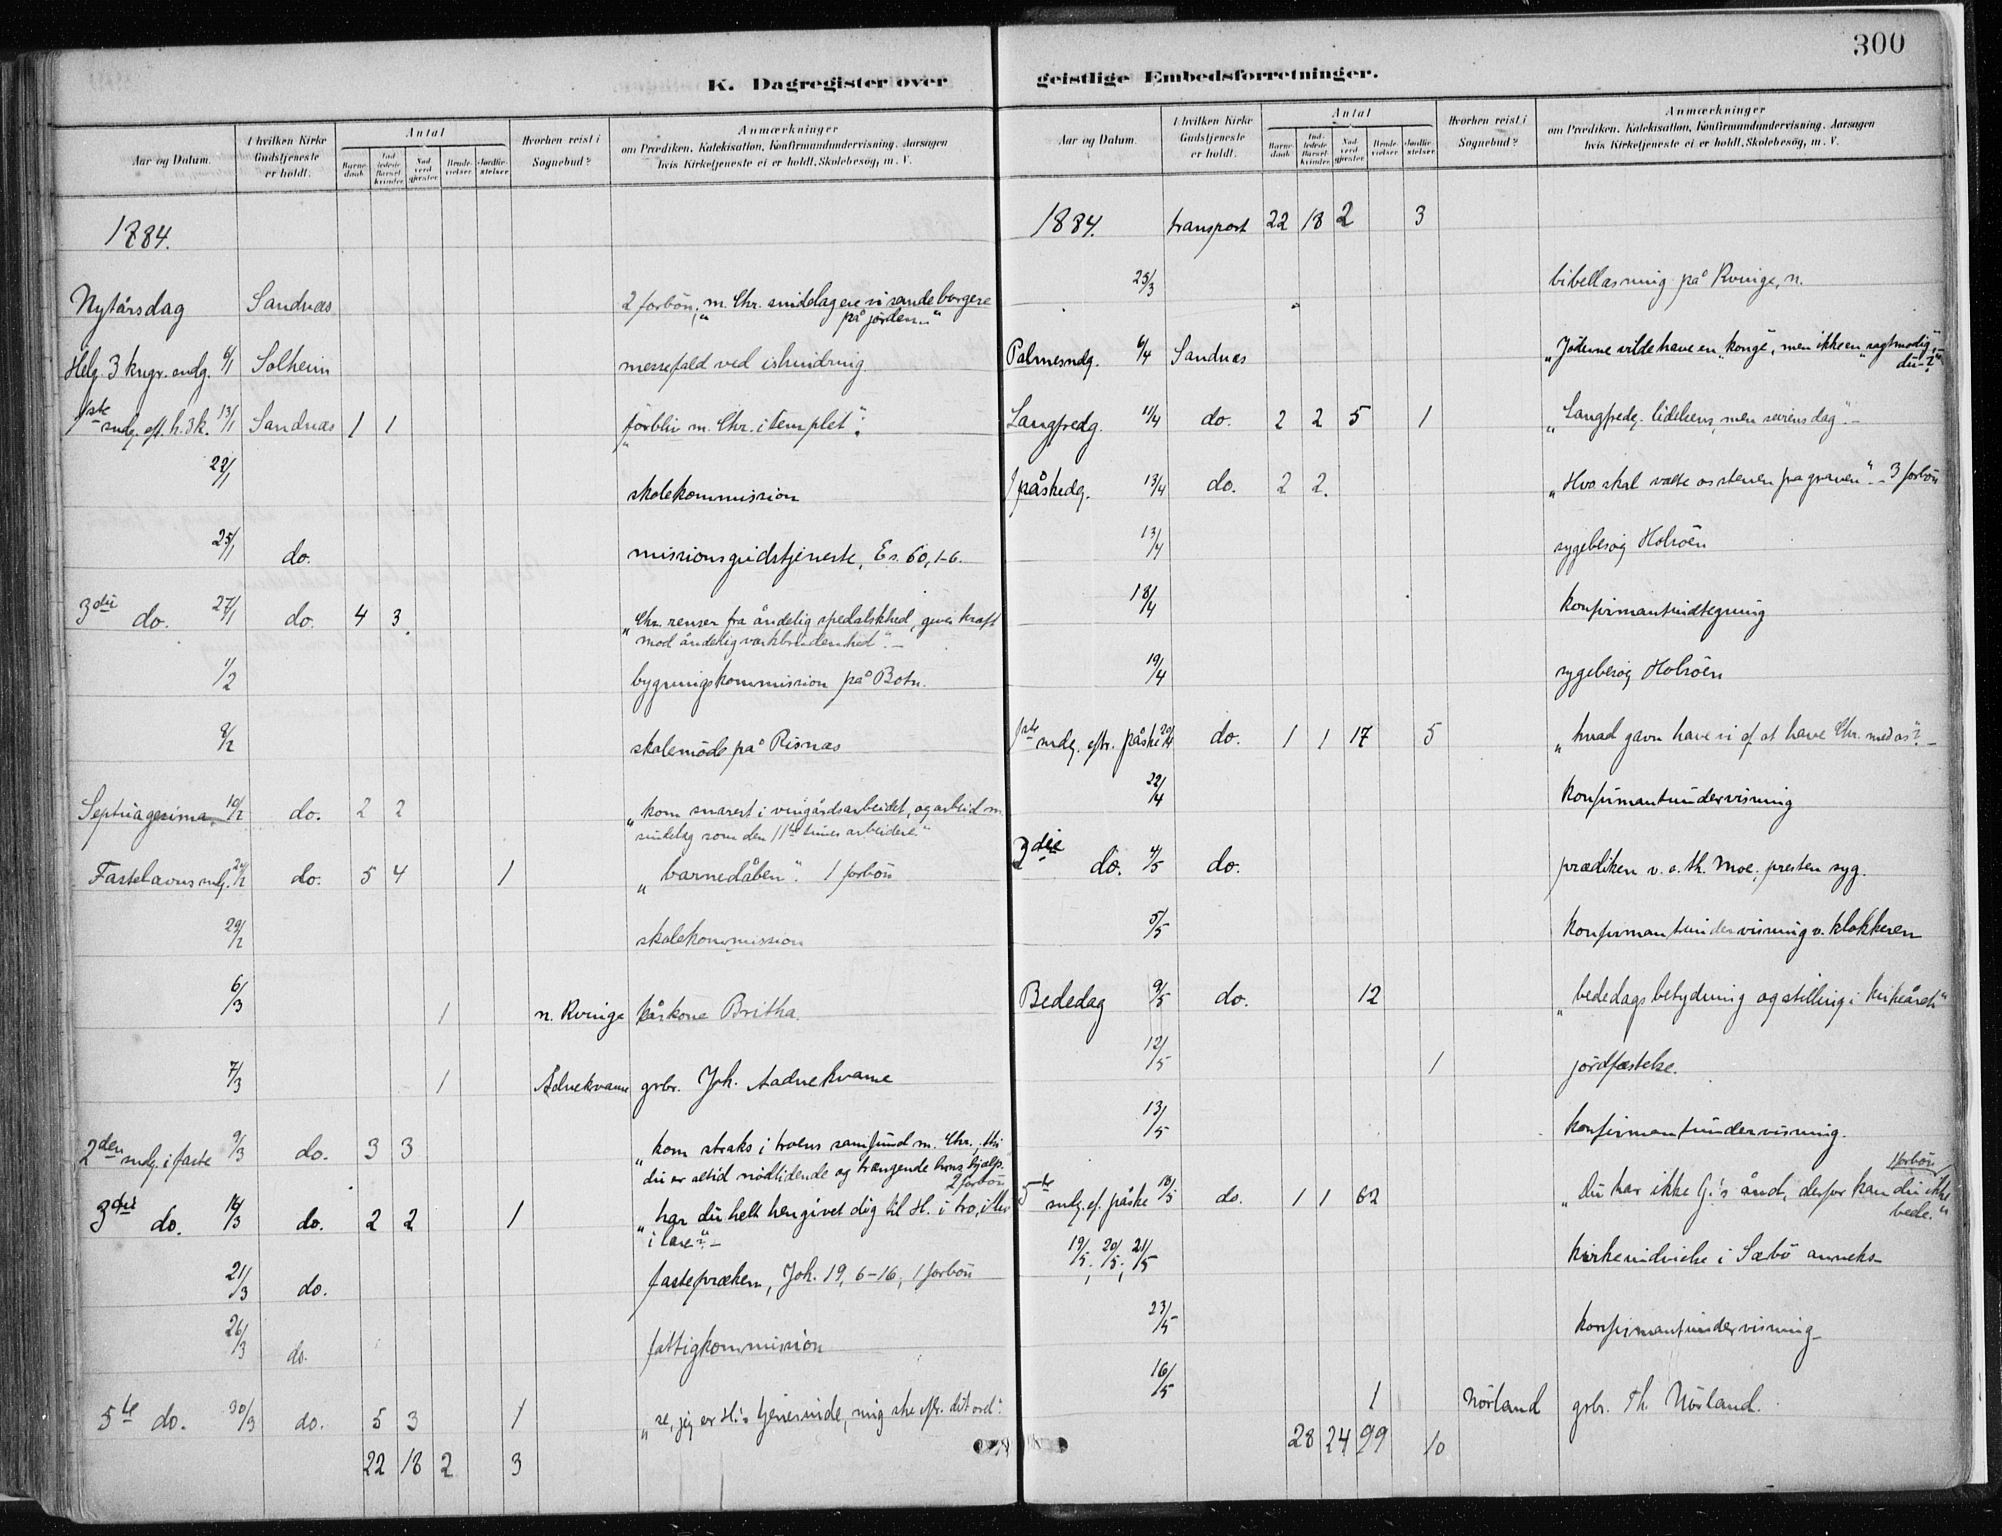 300
K. Dagregister over geistlige Embedsforretninger.
Aar og Datum. | I hvilken Kirke Gudstjeneste er holdt. | Antal | Barnedaab | Indledede Barselkvinder | Nadverdgjæster | Brudevielser | Jordfæstelser | Hvorhen reist i Sognebud? | Anmærkninger om Prædiken, Katekisation, Konfirmandundervisning, Aarsagen hvis Kirketjeneste ei er holdt, Skolebesög, m. V.
1884.
Nytårsdag Sandnæs 2 forbön, „m. Chr. sindelag ere vi sande borgere
på jorden.“
Helg 3 kngr. sndg. 6/1 Solheim messefald ved ishindring
1ste sndg. eft. h. 3 k. 13/1 Sandnæs 1 1 „forbliv m. Chr. i templet“.
22/1 skolekommission
25/1 do. missionsgudstjeneste, Es. 60, 1-6.
3die do. 27/1 do. 4 3. „Chr. renser fra åndelig spedalskhed, giver kraft
mod åndelig værkbrudenhed“. -
1/2 bygningskommission på Botn.
8/2 skolemöde på Risnæs
Septuagesima 10/2 do. 2 2 „kom snarest i vingårdsarbeidet, og arbeid m.
sindelag som den 11te times arbeidere“
Fastelavns sndg. 24/2 do. 5 4 1 „barnedåben“. 1 forbön
29/2 skolekommission
6/3 1 n. Kvinge kårkone Britha.
7/3 1 Adnekvame grbr. Joh. Aadnekvame
2den sndg. i faste 9/3 do. 3 3 „kom straks i troens samfund m. Chr., thi
du er altid nödlidende og trængende hans hjælp.“
2 forbön
3die do. 16/3 do. 2 2 1 „har du helt hengivet dig til H. i tro, i liv
i lære?“ -
21/3 do. fastepræken, Joh. 19, 6-16, 1 forbön
26/3 do. fattigkommission
5te do. 30/3 do. 5 3 1 „se, jeg er H.'s tjenerinde, mig ske eftr. dit ord“.
22 18 2 3
Aar og Datum. | I hvilken Kirke Gudstjeneste er holdt. | Antal | Barnedaab | Indledede Barselkvinder | Nadverdgjæster | Brudevielser | Jordfæstelser | Hvorhen reist i Sognebud? | Anmærkninger om Prædiken, Katekisation, Konfirmandundervisning, Aarsagen hvis Kirketjeneste ei er holdt, Skolebesög, m. V.
1884. transport 22 18 2 3
25/3 bibellæsning på Kvinge, n.
Palmesndg. 6/4 Sandnæs „Jöderne vilde have en konge, men ikke en „sagtmodig“, -
du - ?“
Langfredg. 11/4 do. 2 2 5 1 „Langfredg. lidelsens, men seirens dag“. -
1 påskedg. 13/4 do. 2 2. „Hvo skal vælte os stenen fra graven“. - 3 forbön
13/4 sygebesög Holsöen
18/4 konfirmantindtegning
19/4 sygebesög Holsöen
1ste sndg. eftr. påske 20/4 do. 1 1 17 5 „hvad gavn have vi af at have Chr. med os?“ -
22/4 konfirmantundervisning
3die do. 4/5 do. prædiken v. c. th. Moe, presten syg.
5/5 konfirmantundervisning v. klokkeren
Bededag 9/5 do. 12 „bededags betydning og stilling i kirkeåret“
12/5 1 jördfæstelse.
13/5 konfirmantundervisning.
1 forbön
5te sndg. ef. påske 18/5 do. 1 1 62 „Du har ikke G.'s ånd, derfor kan du ikke
bede.“
19/5, 20/5, 21/5 kirkeindvielse i Sæbö anneks
23/5 konfirmantundervisning
16/5 1 Nörland grbr. Th. Nörland.
28 24 99 10